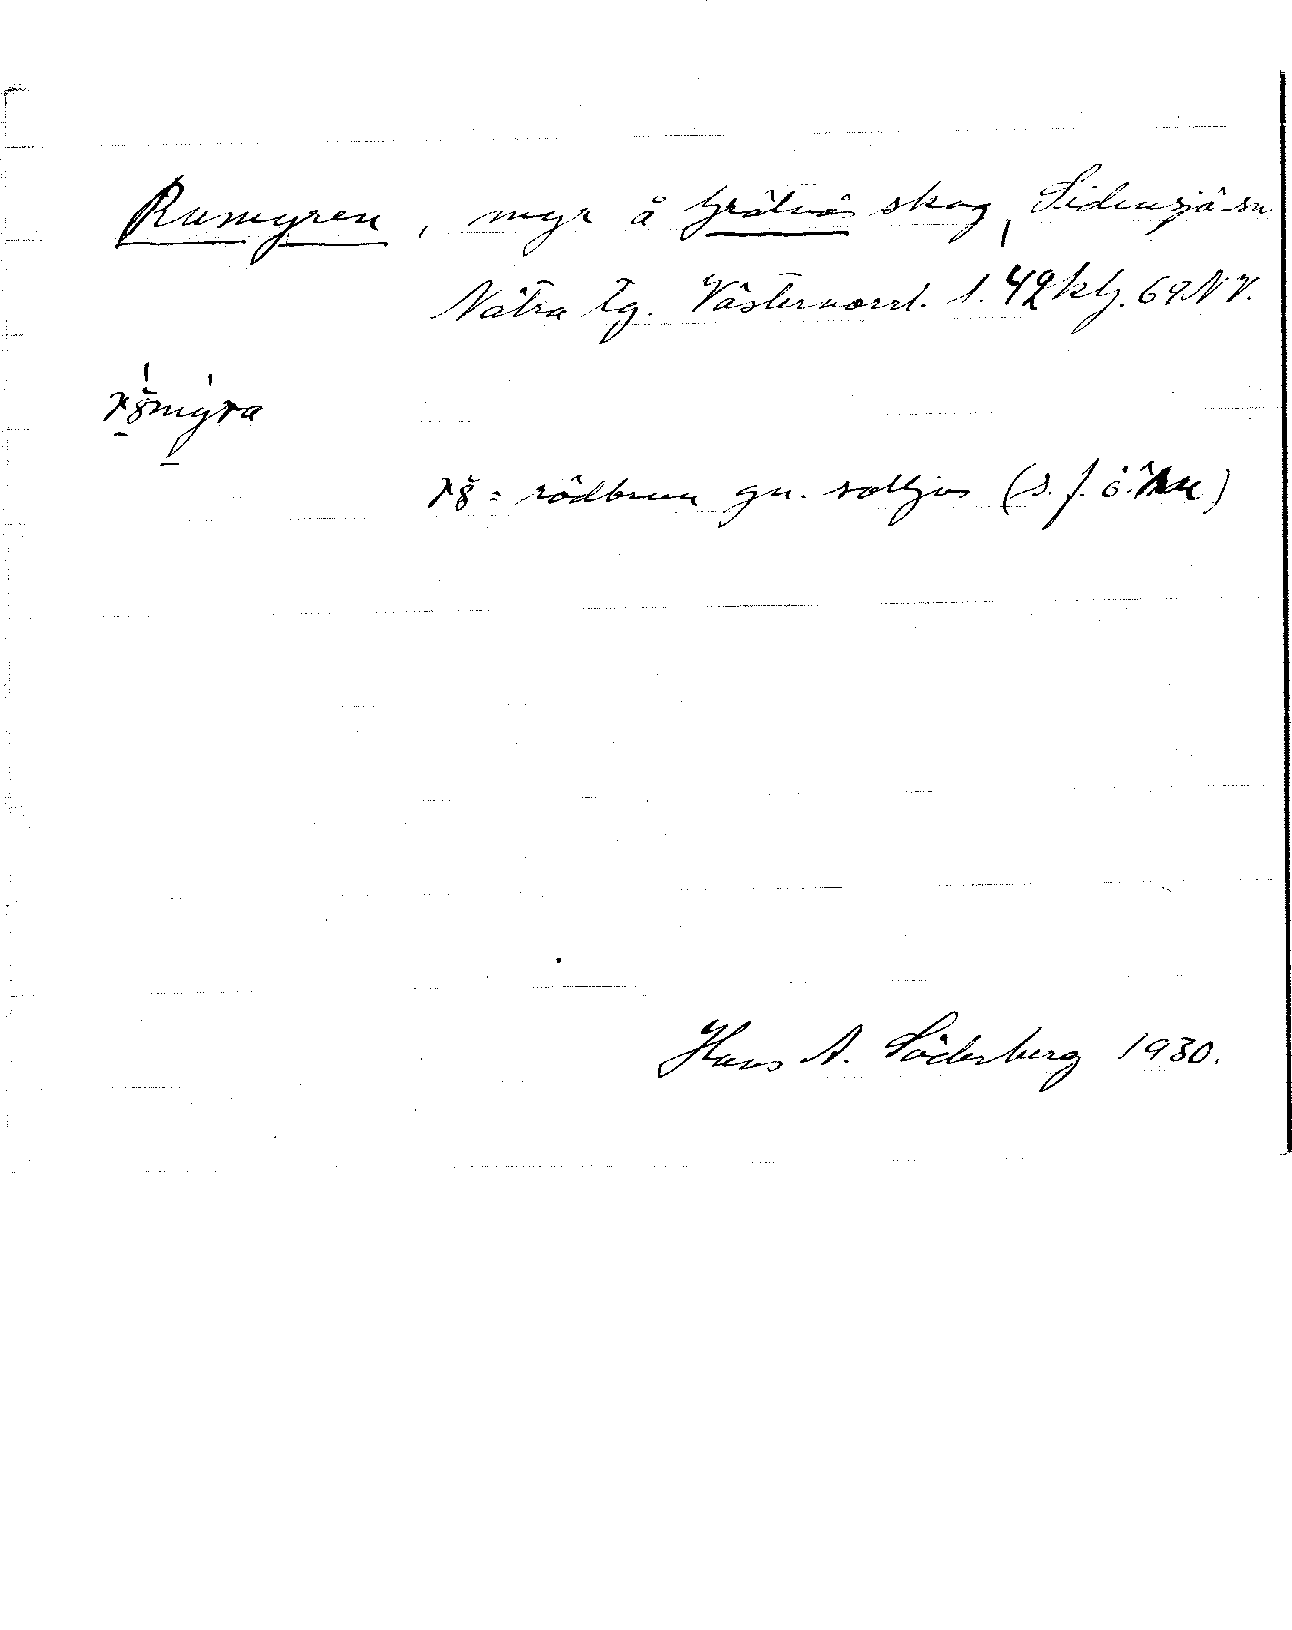 Rumyren, myr å Grätnäs skog, Sidensjö sn
Nätra tg. Västernorrl. l. 42 kbl. 69 NV.
r8myra
r8 = rödbrun gn. (s. f. ö.
Hans A. Söderberg 1930.